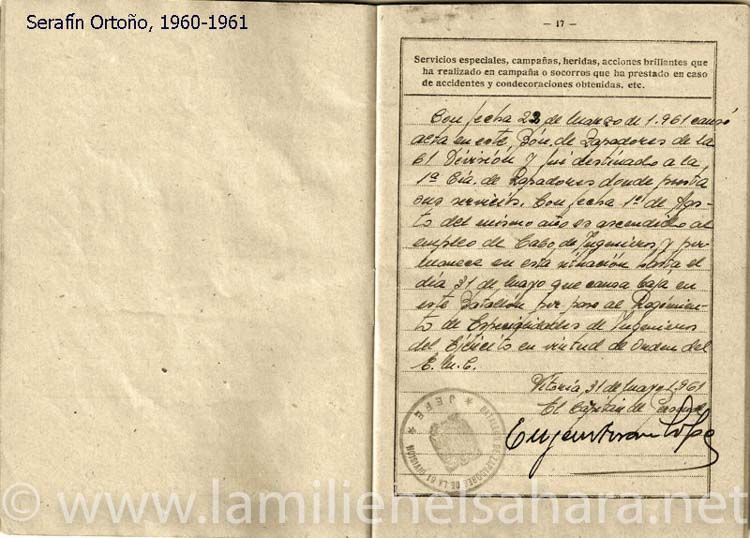 Serafín Ortoño, 1960-1961
— 17 —
Servicios especiales, campañas, heridas, acciones brillantes que
ha realizado en campaña o socorros que ha prestado en caso
de accidentes y condecoraciones obtenidas, etc.
Con fecha 22 de Marzo de 1.961 causó
alta en este, Bón. de Zapadores de la
61 División y fué destinado a la,
1ª Cía. de Zapadores donde presta
sus servicios. Con fecha 1º de Agos-
to del mismo año es ascendido al
empleo de Cabo de Ingenieros, y per-
manece en esta situación hasta el
día 31 de Mayo que causa baja en
este Batallón por pase al Regimien-
to de Especialidades de Ingenieros
del Ejército en virtud de Orden del
E.M.C.
Vitoria 31 de Mayo 1.961
El Capitán de
* JEFE *
BATALLON DE ZAPADORES DE LA 61 DIVISION
© www.lamilienelsahara.net